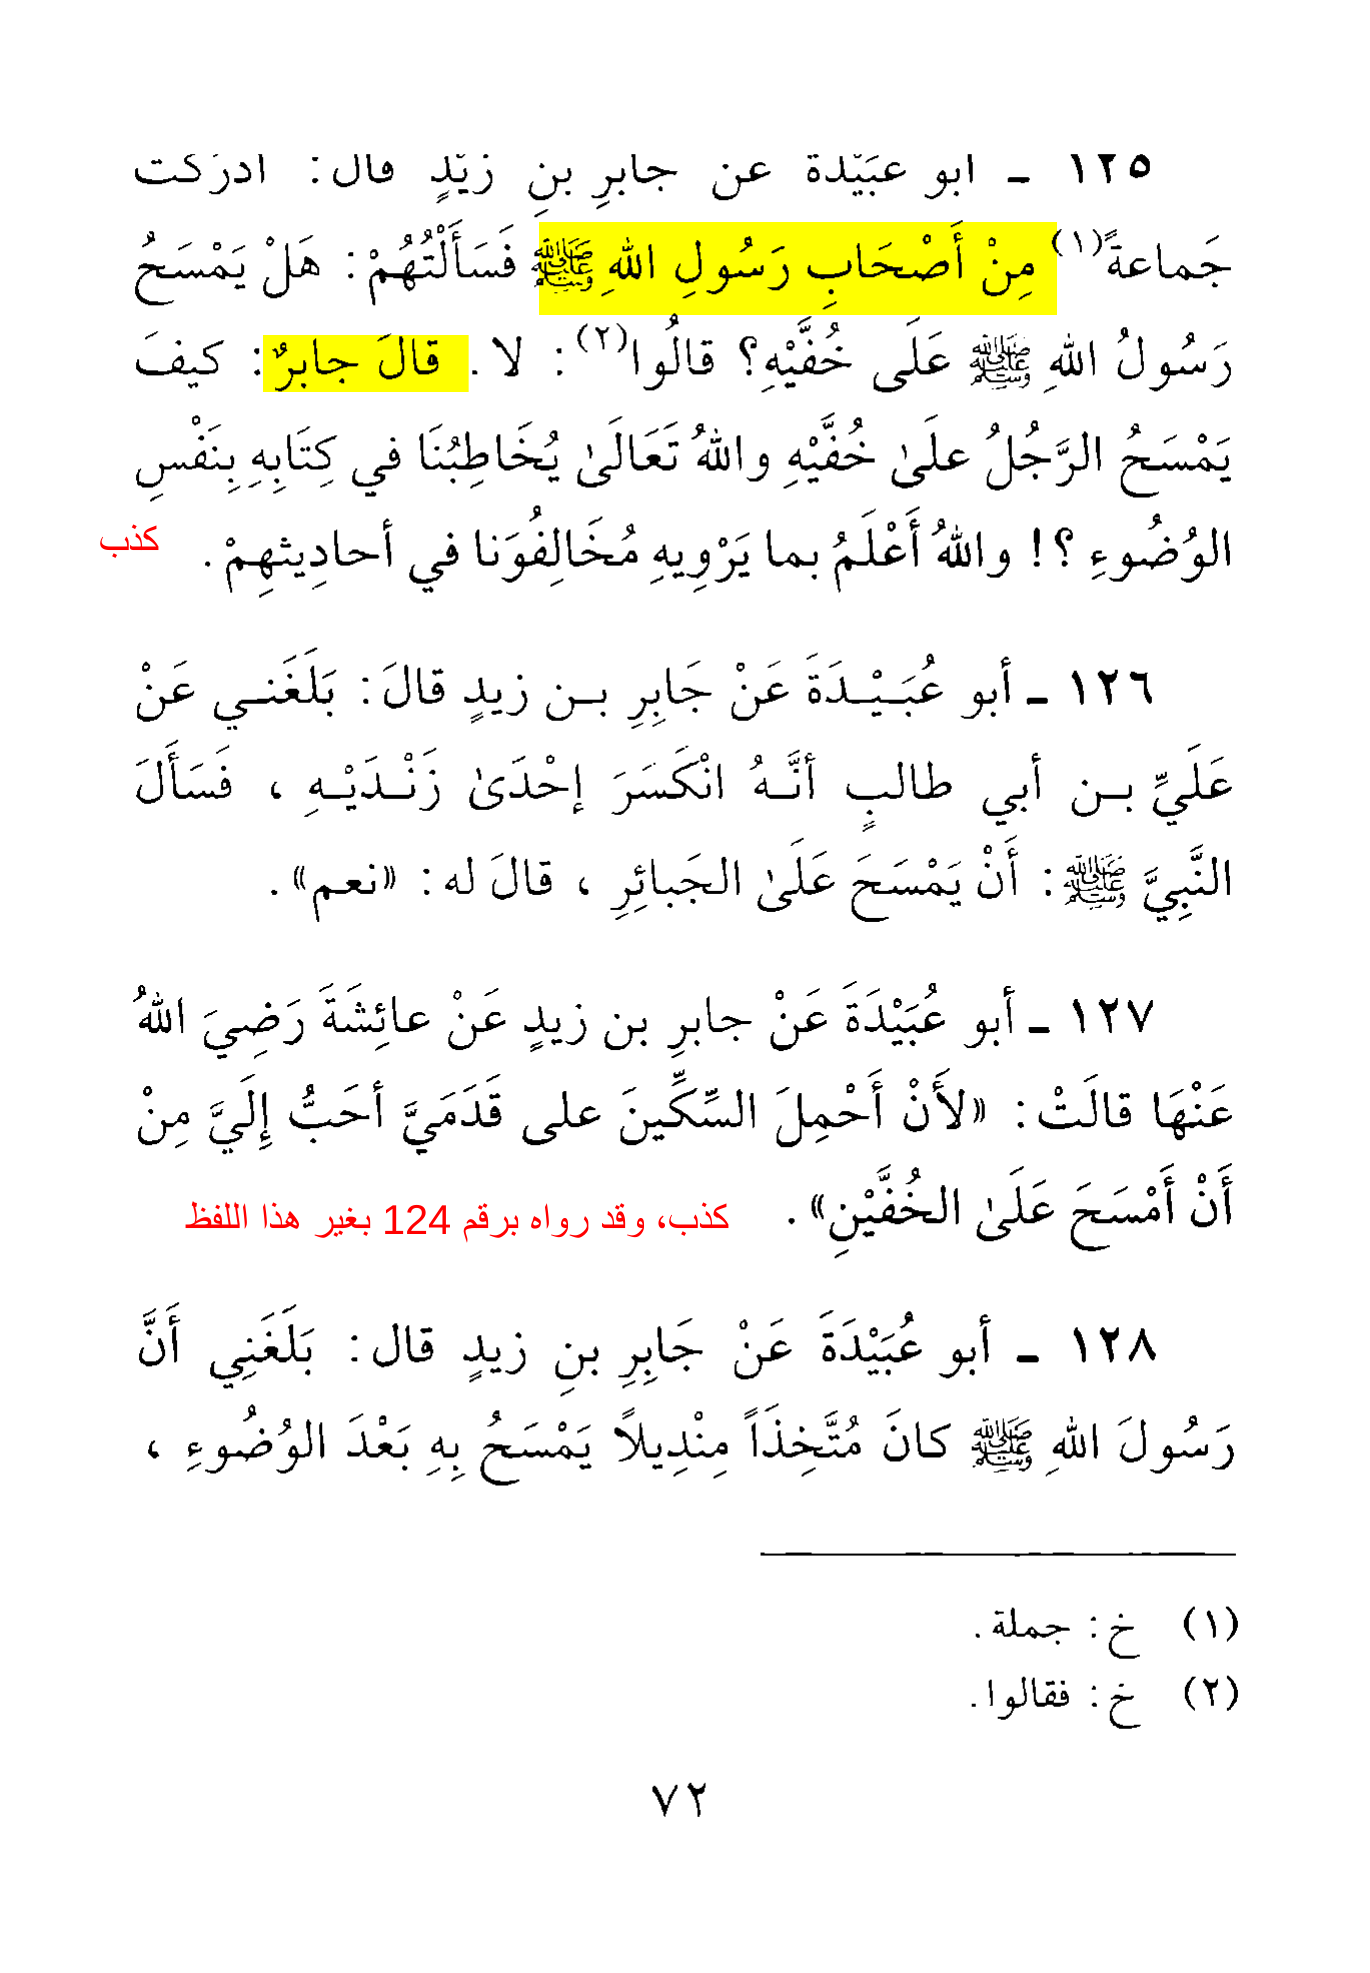 ١٢٥ ـ أبو عبَيْدةَ عن جابرِ بنِ زيْدٍ قال : أدرَكت
جَماعةً(١) مِنْ أَصْحَابِ رَسُولِ اللهِ ﷺ فَسَأَلْتُهُمْ : هَلْ يَمْسَحُ
رَسُولُ اللهِ ﷺ عَلَى خُفَّيْهِ؟ قالُوا(٢) : لا . قالَ جابرٌ : كيفَ
يَمْسَحُ الرَّجُلُ علَىٰ خُفَّيْهِ واللهُ تَعَالَىٰ يُخَاطِبُنَا في كِتَابِهِ بِنَفْسِ
الوُضُوءِ ؟! واللهُ أَعْلَمُ بما يَرْوِيهِ مُخَالِفُوَنا في أحادِيثهِمْ . كذب
١٢٦ ـ أبو عُبَـيْـدَةَ عَنْ جَابِرِ بـن زيدٍ قالَ : بَلَغَنـي عَنْ
عَلَيِّ بـن أبي طالبٍ أنَّـهُ انْكَسَرَ إحْدَىٰ زَنْـدَيْـهِ ، فَسَأَلَ
النَّبِيَّ ﷺ : أَنْ يَمْسَحَ عَلَىٰ الجَبائِرِ ، قالَ له : «نعم» .
١٢٧ ـ أبو عُبَيْدَةَ عَنْ جابرِ بن زيدٍ عَنْ عائِشَةَ رَضِيَ اللهُ
عَنْهَا قالَتْ : «لأَنْ أَحْمِلَ السِّكِّينَ على قَدَمَيَّ أحَبُّ إِلَيَّ مِنْ
أَنْ أَمْسَحَ عَلَىٰ الخُفَّيْنِ» . كذب، وقد رواه برقم 124 بغير هذا اللفظ
١٢٨ ـ أبو عُبَيْدَةَ عَنْ جَابِرِ بنِ زيدٍ قال : بَلَغَنِي أَنَّ
رَسُولَ اللهِ ﷺ كانَ مُتَّخِذَاً مِنْدِيلاً يَمْسَحُ بِهِ بَعْدَ الوُضُوءِ ،
(١) خ : جملة .
(٢) خ : فقالوا .
٧٢